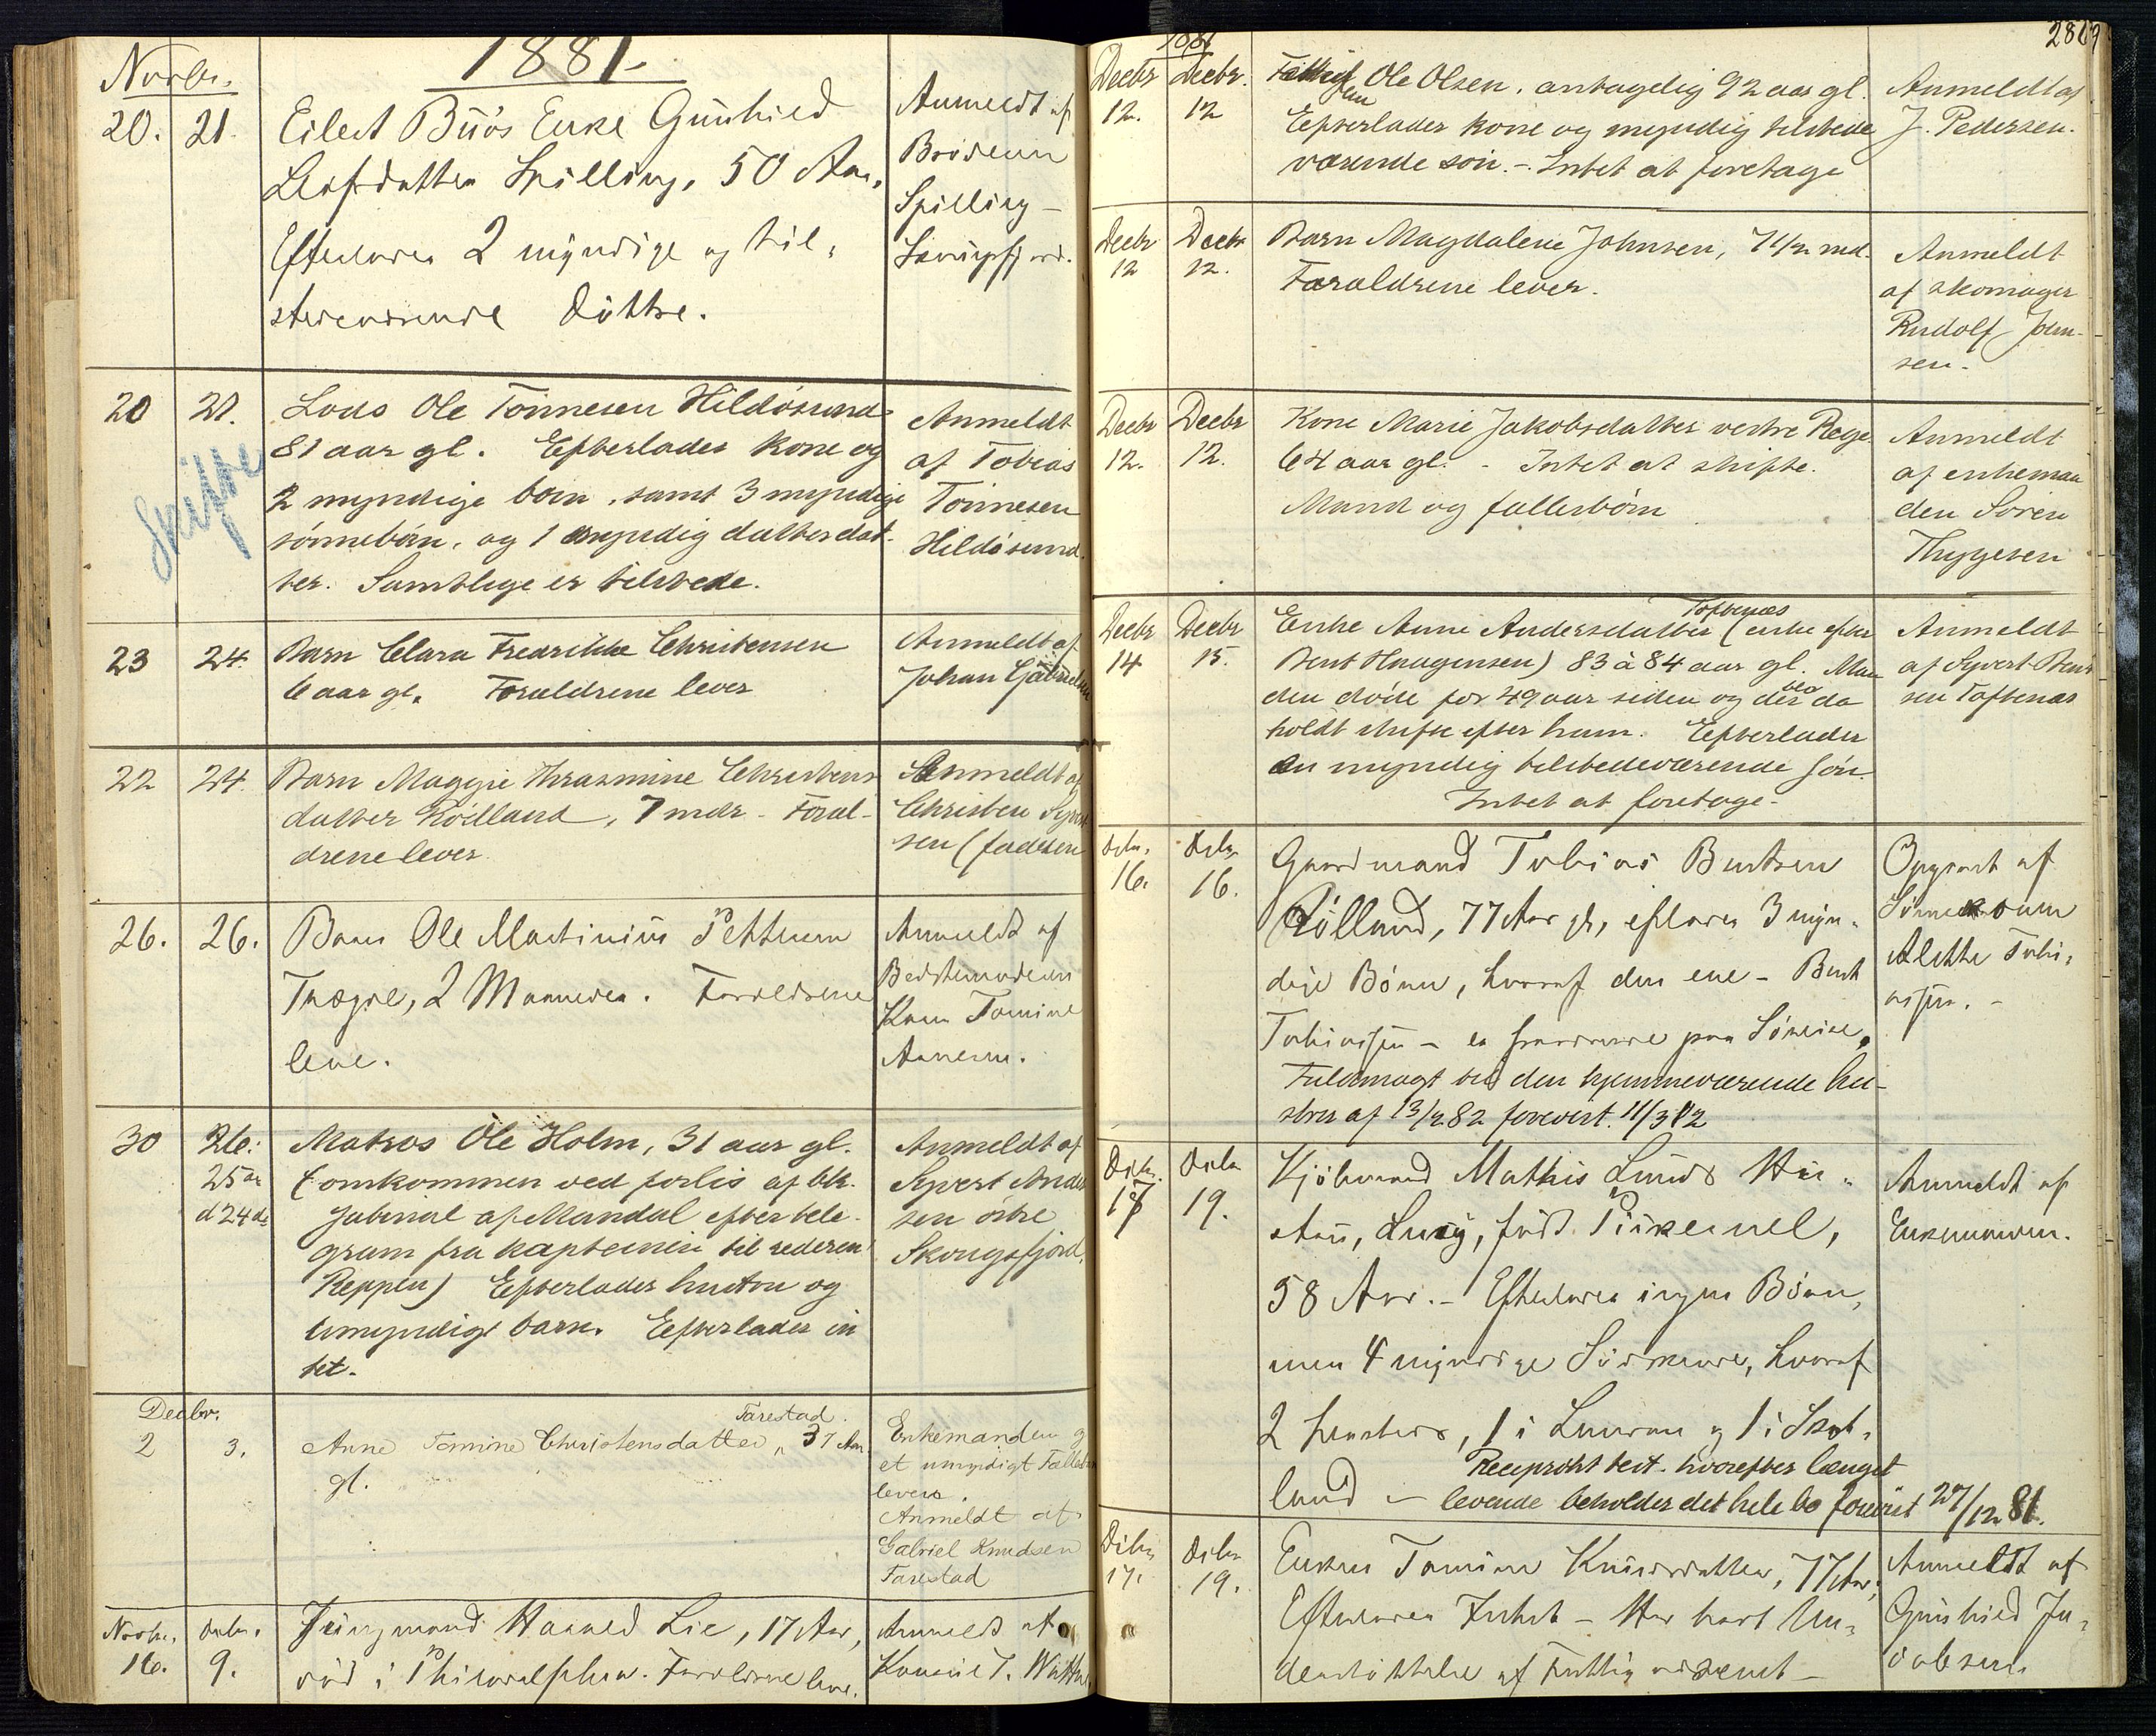 1881.
Novbr.
20. 21.
Eilert Buös Enke Gunhild
Leifsdatter Spilling, 50 Aar,
Efterlader 2 myndige og til-
stedeværende Døttre.
Anmeldt af
Broderen
Spilling -
20 21.
Skifte
Lods Ole Tönnesen Hildösund
81 aar gl. Efterlader kone og
2 myndige börn, samt 3 myndige
sönnebörn, og 1 myndig datterdat-
ter. Samtlige er tilstede.
Anmeldt
af Tobias
Tönnesen
Hildösund.
23 24.
Barn Clara Fredrikke Christensen
6 aar gl. Forældrene lever
Anmeldt af
Johan Gabrielsen
22 24.
Barn Maggie Thrasmine Christens
datter Rödland, 7 mdr - Foræl-
drene lever
Anmeldt af
Christen Syvert
sen (faderen
26. 26.
Barn Ole Martinius Pettersen
2 Maaneder. Forældrene
leve.
Anmeldt af
Bedstemoderen
Kone Tomine
30 26.
25 de
d 24 de
Matros Ole Holm, 31 aar gl.
(omkommen ved forlis af bk.
Jubinal af Mandal efter tele-
gram fra kapteinen til rederen
Reppen) Efterlader hustru og
umyndigt barn. Efterlader in
tet.
Anmeldt af
Syvert Ander
sen östre
Skougsfjord.
Decbr.
2 3.
Tarestad.
Anne Tomine Christensdatter, 37 Aar
gl.
Enkemanden og
et umyndigt Fællesbarn
levera.
Anmeldt af
Gabriel Knudsen
Tarestad
Novbr. Decbr.
16. 9.
Jungmand Harald Lie, 17 Aar,
död i Philadelphia. Forældrene leve.
Anmeldt af
1881
2869
Decbr Decbr.
12. 12
Fattiglem Ole Olsen, antagelig 92 aar gl.
Efterlader kone og myndig tilstede
værende sön. - Intet at foretage
Anmeldt af
J. Pedersen.
Decbr Decbr
12 12.
Barn Magdalene Johnsen, 7 1/2 md.
Forældrene lever.
Anmeldt
af skomager
Rudolf John-
sen.
Decbr Decbr
12. 12.
Kone Marie Jakobsdatter vestre Rege
64 aar gl. - Intet at skifte.
Mand og fællesbörn
Anmeldt
af enkeman
den Sören
Thygesen
Decbr Decbr
14 15.
Toftenæs
Enke Anne Andersdatter (enke efter
Bent Haagensen) 83 à 84 aar gl. Man
den döde for 49 aar siden og der blev da
holdt skifte efter ham. Efterlader
en myndig tilstedeværende sön.
Intet at foretage.
Anmeldt
af Syvert Bent
sen Toftenæs
Dcbr. Dcbr.
16. 16.
Gaardmand Tobias Bentsen
Rölland, 77 Aar gl, efterlader 3 myn-
dige Börn, hvoraf den ene - Bent
Tobiassen - er fraværende paa Söreise.
Fuldmagt til den hjemmeværende hu-
stru af 13/2 82 forevist. 11/3 82
Opgivet af
Sönnekonen
Alette Tobi-
assen. -
Dcbr. Dcbr
17 19.
Kjöbmand Mathis Lunds Hu-
stru, Lucy, född Pirkernel,
58 Aar. - Efterlader ingen Börn,
men 4 myndige Södskende, hvoraf
2 1 i 1 i Skot-
land - Reciprokt test. hvorefter længst
levende beholder det hele bo forevist 27/12 81.
Anmeldt af
Enkemanden.
Dcbr. Dcbr
17. 19.
Enken Tomine Knudsdatter, 77 Aar,
Efterlader Intet - Har havt Un-
derstöttelse af Fattigvæsenet -
Anmeldt af
Gunhild Ja-
cobsen